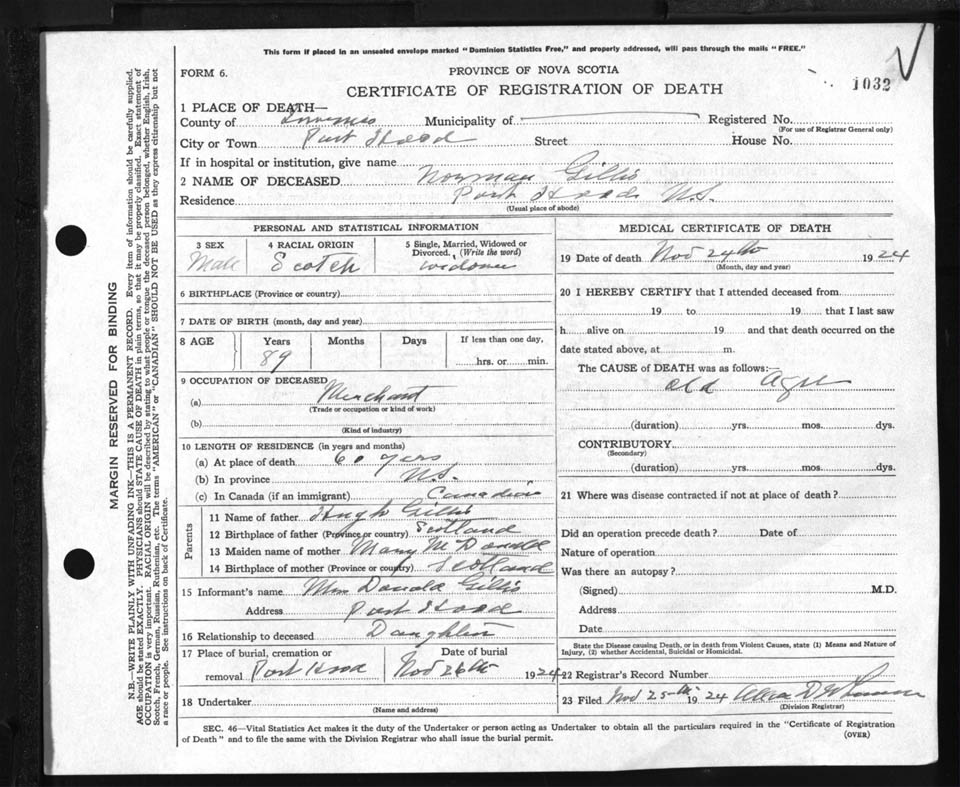 This form if placed in an unsealed envelope marked "Dominion Statistics Free," and properly addressed, will pass through the mails "FREE."
FORM 6.
PROVINCE OF NOVA SCOTIA
1032
CERTIFICATE OF REGISTRATION OF DEATH
1 PLACE OF DEATH—
County of Inverness Municipality of Registered No.
(For use of Registrar General only)
City or Town Port Hood Street House No.
If in hospital or institution, give name
2 NAME OF DECEASED Norman Gillis
Residence Port Hood N.S.
(Usual place of abode)
PERSONAL AND STATISTICAL INFORMATION
3 SEX Male
4 RACIAL ORIGIN Scotch
5 Single, Married, Widowed or Divorced. (Write the word) widower
6 BIRTHPLACE (Province or country)
7 DATE OF BIRTH (month, day and year)
8 AGE Years Months Days If less than one day,
89 hrs. or min.
9 OCCUPATION OF DECEASED
(a) Merchant
(Trade or occupation or kind of work)
(b)
(Kind of industry)
10 LENGTH OF RESIDENCE (in years and months)
(a) At place of death 60 yers
(b) In province N.S.
(c) In Canada (if an immigrant) Canadian
Parents
11 Name of father Hugh Gillis
12 Birthplace of father (Province or country) Scotland
13 Maiden name of mother Mary McDonald
14 Birthplace of mother (Province or country) Scotland
15 Informant's name Mrs Donald Gillis
Address Port Hood
16 Relationship to deceased Daughter
17 Place of burial, cremation or removal Port Hood
Date of burial Nov 26th 1924
18 Undertaker
(Name and address)
MEDICAL CERTIFICATE OF DEATH
19 Date of death Nov 24th 1924
(Month, day and year)
20 I HEREBY CERTIFY that I attended deceased from
19 to 19 that I last saw
h alive on 19 and that death occurred on the
date stated above, at m.
The CAUSE of DEATH was as follows:—
old Age
(duration) yrs. mos. dys.
CONTRIBUTORY
(Secondary)
(duration) yrs. mos. dys.
21 Where was disease contracted if not at place of death?
Did an operation precede death? Date of
Nature of operation
Was there an autopsy?
(Signed) M.D.
Address
Date
State the Disease causing Death, or in death from Violent Causes, state (1) Means and Nature of
Injury, (2) whether Accidental, Suicidal or Homicidal.
22 Registrar's Record Number
23 Filed Nov 25th 1924
(Division Registrar)
SEC. 46—Vital Statistics Act makes it the duty of the Undertaker or person acting as Undertaker to obtain all the particulars required in the "Certificate of Registration
of Death" and to file the same with the Division Registrar who shall issue the burial permit.
(OVER)
MARGIN RESERVED FOR BINDING
N.B.—WRITE PLAINLY WITH UNFADING INK—THIS IS A PERMANENT RECORD. Every item of information should be carefully supplied.
AGE should be stated EXACTLY. PHYSICIANS should STATE CAUSE OF DEATH in plain terms, so that it may be properly classified. Exact statement of
OCCUPATION is very important. RACIAL ORIGIN will be described by stating to what people or tongue the deceased person belonged, whether English, Irish,
Scotch, French, German, Russian, Ruthenian, etc. The terms "AMERICAN" or "CANADIAN" SHOULD NOT BE USED as they express citizenship but not
a race or people. See instructions on back of Certificate.